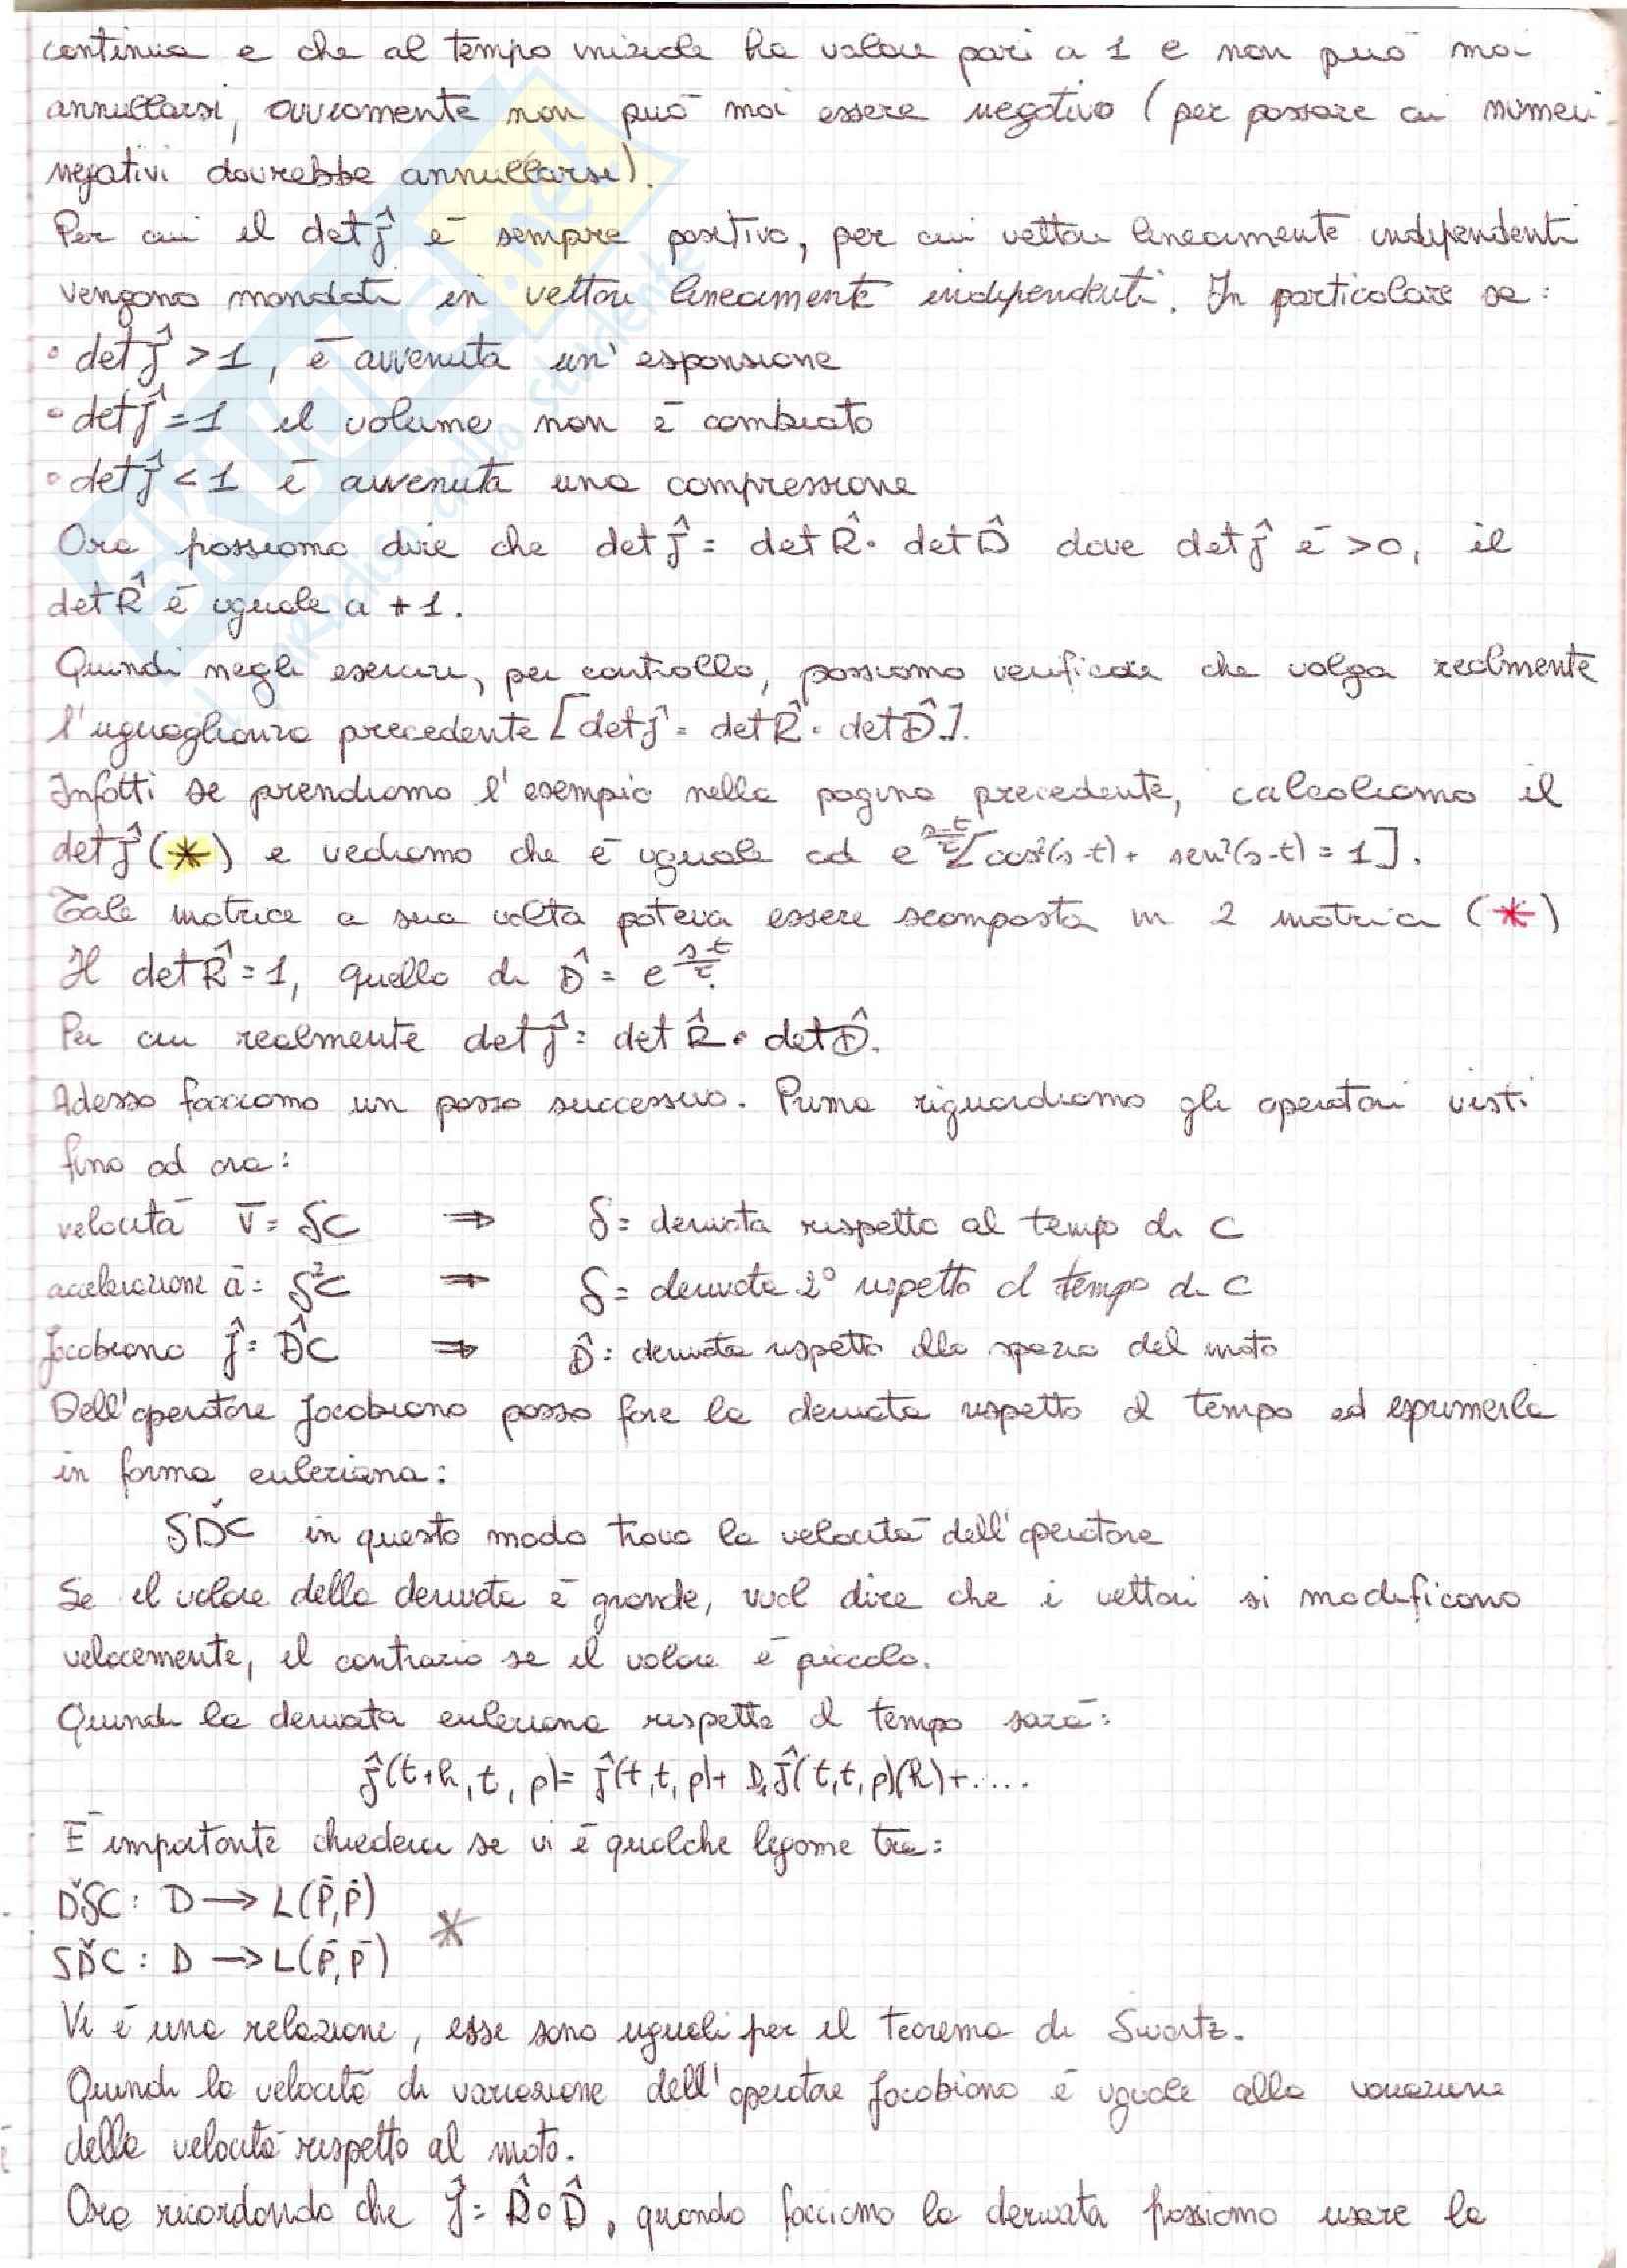 continua e che al tempo iniziale ha valore pari a 1 e non può mai
annullarsi, ovviamente non può mai essere negativo (per passare ai numeri
negativi dovrebbe annullarsi).
Per cui il det Ĵ è sempre positivo, per cui vettori linearmente indipendenti
vengono mandati in vettori linearmente indipendenti. In particolare se:
• det Ĵ > 1, è avvenuta un' espansione
• det Ĵ = 1 il volume non è cambiato
• det Ĵ < 1 è avvenuta una compressione
Ora possiamo dire che det Ĵ = det R̂ · det D̂ dove det Ĵ è >0, il
det R̂ è uguale a +1.
Quindi negli esercizi, per controllo, possiamo verificare che valga realmente
l'uguaglianza precedente [det Ĵ = det R̂ · det D̂].
Infatti se prendiamo l'esempio nella pagina precedente, calcoliamo il
det Ĵ (*) e vediamo che è uguale ad e^((s-t)/τ) [cos²(s-t) + sen²(s-t) = 1].
Tale matrice a sua volta poteva essere scomposta in 2 matrici (*)
Il det R̂ = 1, quello di D̂ = e^((s-t)/τ).
Per cui realmente det Ĵ = det R̂ · det D̂.
Adesso facciamo un passo successivo. Prima riguardiamo gli operatori visti
fino ad ora:
velocità v̄ = δC ⇒ δ = derivata rispetto al tempo di C
accelerazione ā = δ²C ⇒ δ = derivata 2° rispetto al tempo di C
Jacobiano Ĵ = D̂C ⇒ D̂ = derivata rispetto allo spazio del moto
Dell'operatore Jacobiano posso fare la derivata rispetto al tempo ed esprimerla
in forma euleriana:
δĎC in questo modo trovo la velocità dell'operatore
Se il valore della derivata è grande, vuol dire che i vettori si modificano
velocemente, il contrario se il valore è piccolo.
Quindi la derivata euleriana rispetto al tempo sarà:
Ĵ(t+h, t, p) = Ĵ(t, t, p) + D₁Ĵ(t, t, p)(h) + ....
È importante chiederci se vi è qualche legame tra:
ĎδC : D → L(P̄, P̄)
*
δĎC : D → L(P̄, P̄)
Vi è una relazione, esse sono uguali per il teorema di Swartz.
Quindi la velocità di variazione dell'operatore Jacobiano è uguale alla variazione
della velocità rispetto al moto.
Ora ricordando che Ĵ = R̂ ∘ D̂, quando facciamo la derivata possiamo usare la